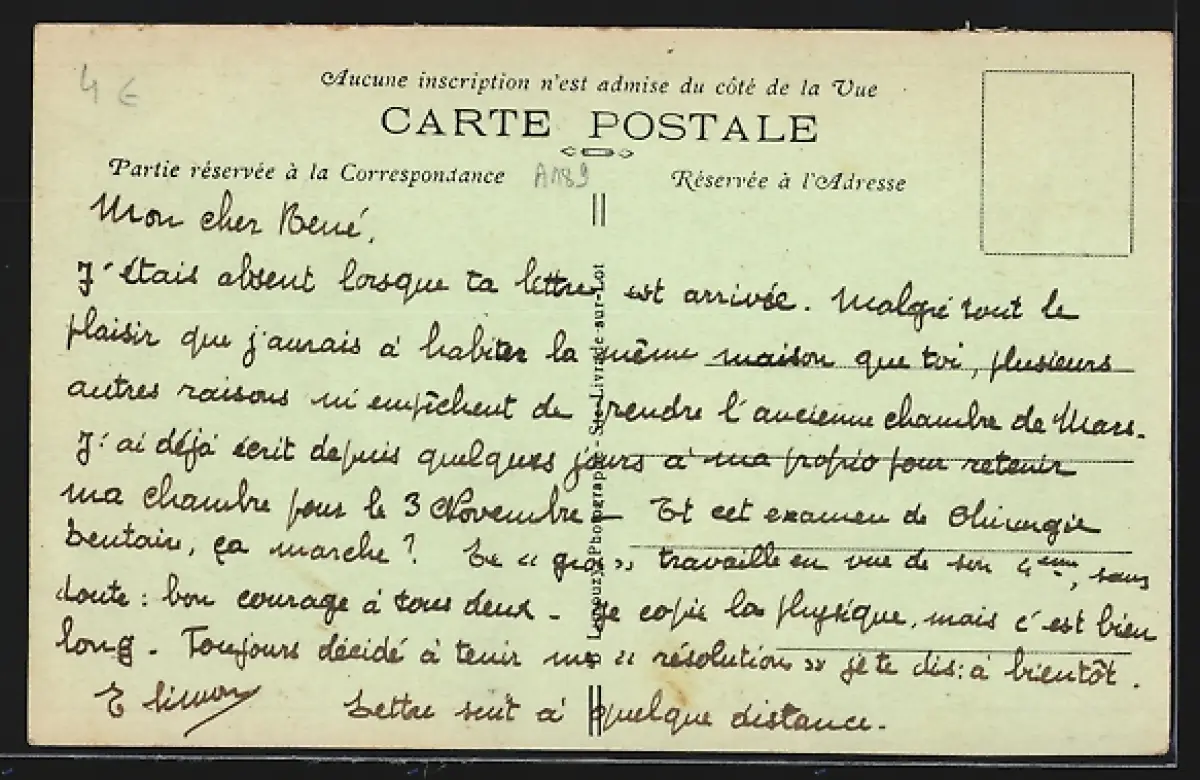 4 €
Aucune inscription n'est admise du côté de la Vue
CARTE POSTALE
Partie réservée à la Correspondance
A1189
Réservée à l'Adresse
Mon cher René,
J'étais absent lorsque ta lettre est arrivée. Malgré tout le
plaisir que j'aurais à habiter la même maison que toi, plusieurs
autres raisons m'empêchent de prendre l'ancienne chambre de Mars.
J'ai déjà écrit depuis quelques jours à ma proprio pour retenir
ma chambre pour le 3 Novembre - Et cet examen de Chirurgie
Dentaire, ça marche ? Le « gros » travaille en vue de son 4ème, sans
doute : bon courage à tous deux - Je copie la physique, mais c'est bien
long. Toujours décidé à tenir ma « résolution » je te dis : à bientôt.
E Simon Lettre suit à quelque distance.
Photographe - Ste-Livrade-sur-Lot